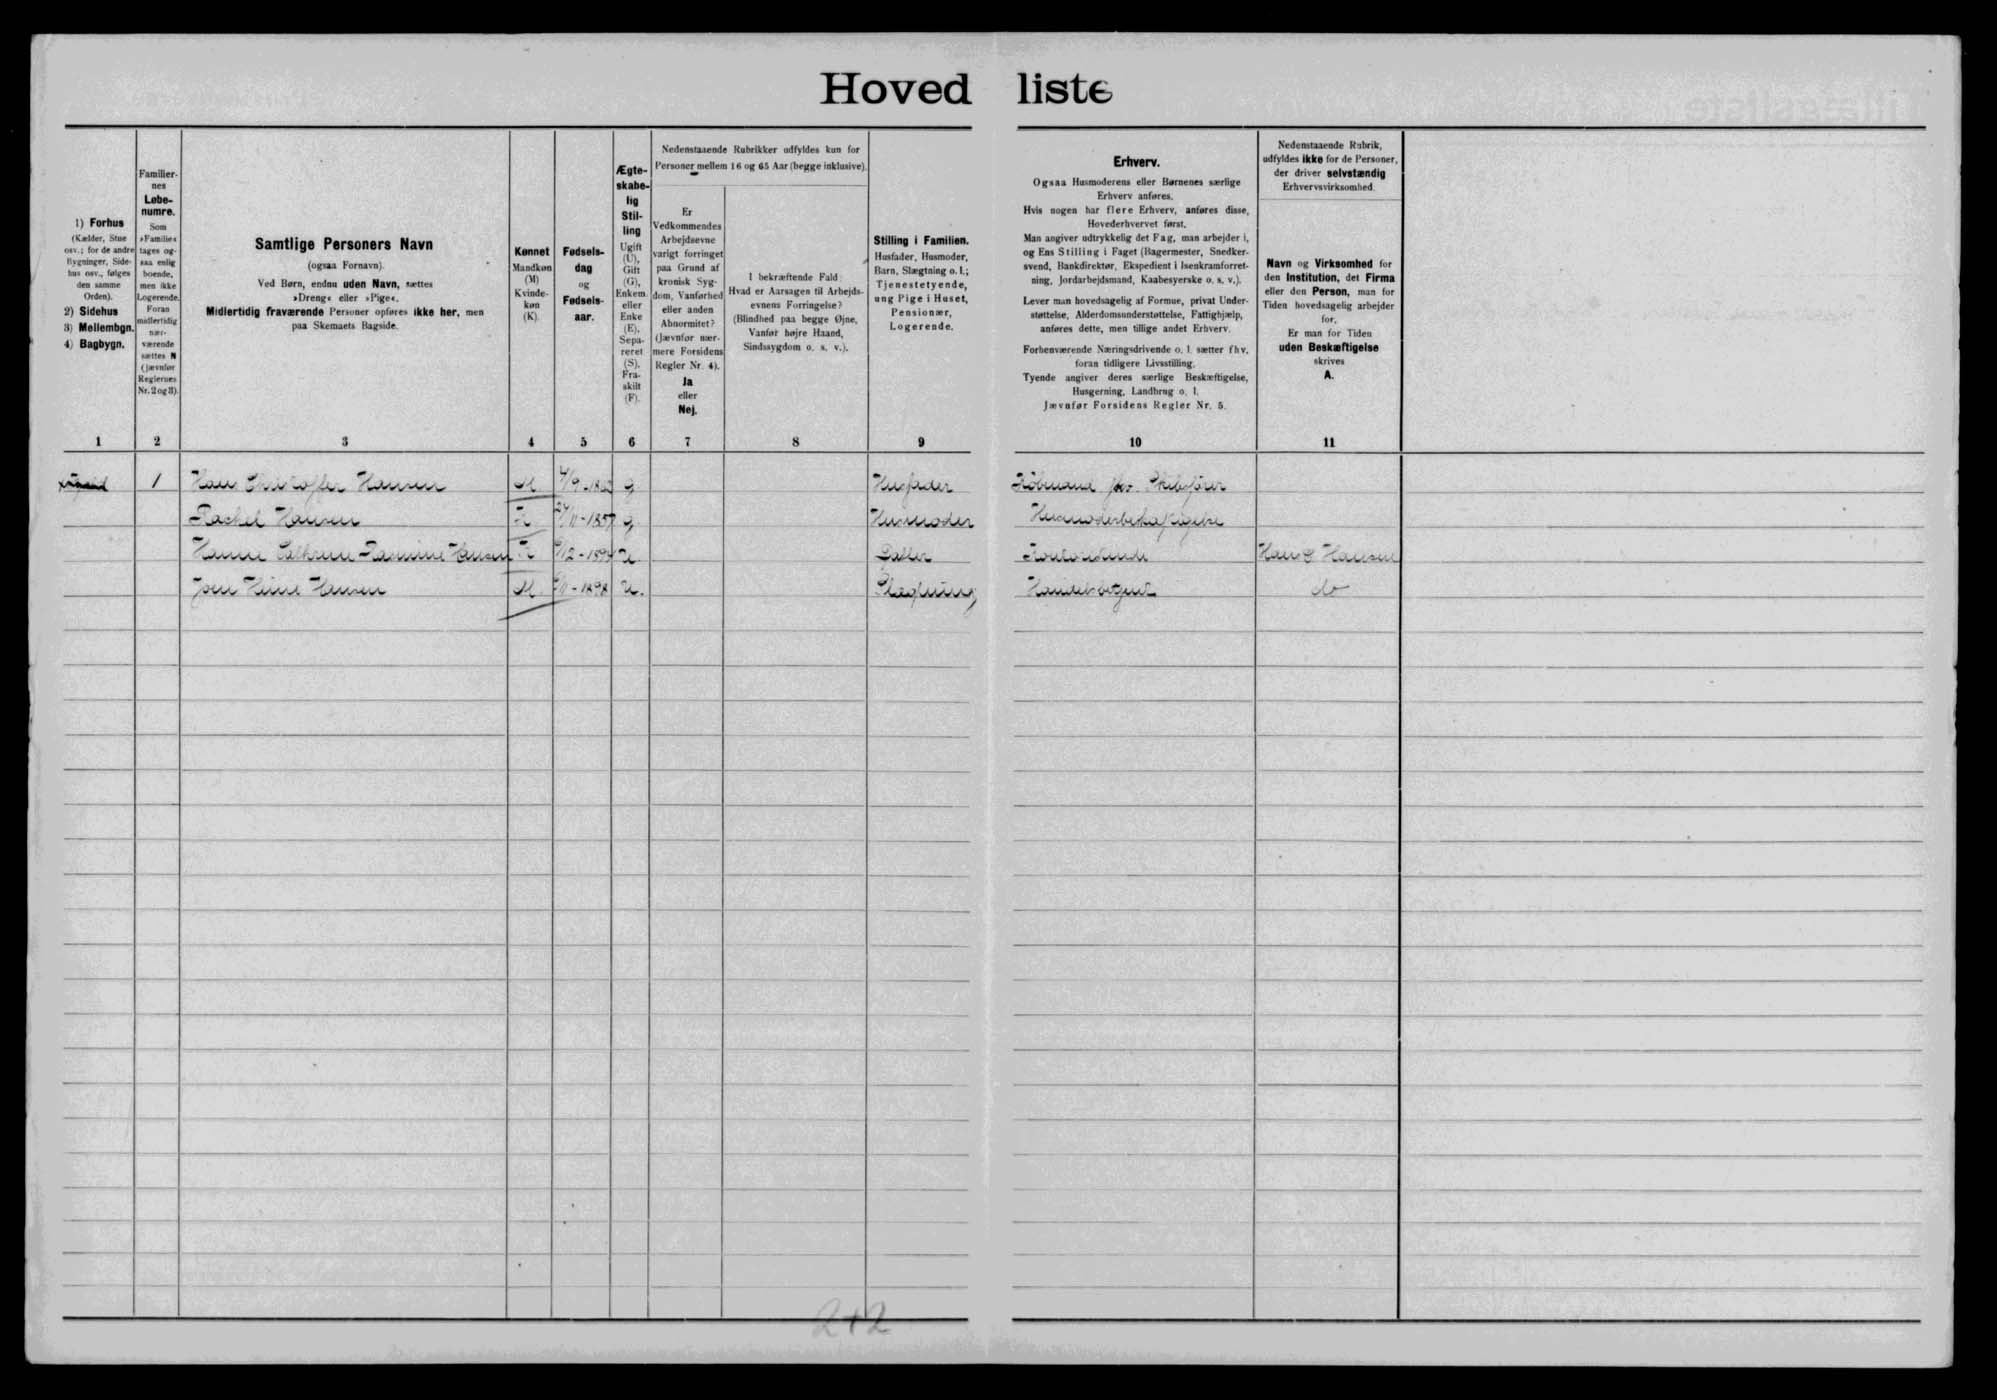 Hovedliste
1) Forhus
(Kælder, Stue
osv.; for de andre
Bygninger, Side-
hus osv., følges
den samme
Orden).
2) Sidehus
3) Mellembgn.
4) Bagbygn.
1
Familier-
nes
Løbe-
numre.
Som
»Familie«
tages og-
saa enlig
boende,
men ikke
Logerende.
Foran
midlertidig
nær-
værende
sættes N
(jævnfør
Reglernes
Nr. 2 og 3).
2
Samtlige Personers Navn
(ogsaa Fornavn).
Ved Børn, endnu uden Navn, sættes
»Dreng« eller »Pige«.
Midlertidig fraværende Personer opføres ikke her, men
paa Skemaets Bagside.
3
Kønnet
Mandkøn
(M)
Kvinde-
køn
(K).
4
Fødsels-
dag
og
Fødsels-
aar.
5
Ægte-
skabe-
lig
Stil-
ling
Ugift
(U),
Gift
(G),
Enkem.
eller
Enke
(E),
Sepa-
reret
(S),
Fra-
skilt
(F).
6
Nedenstaaende Rubrikker udfyldes kun for
Personer mellem 16 og 65 Aar (begge inklusive).
Er
Vedkommendes
Arbejdsevne
varigt forringet
paa Grund af
kronisk Syg-
dom, Vanførhed
eller anden
Abnormitet?
(Jævnfør nær-
mere Forsidens
Regler Nr. 4).
Ja
eller
Nej.
7
I bekræftende Fald:
Hvad er Aarsagen til Arbejds-
evnens Forringelse?
(Blindhed paa begge Øjne,
Vanfør højre Haand,
Sindssygdom o. s. v.).
8
Stilling i Familien.
Husfader, Husmoder,
Barn, Slægtning o. l.;
Tjenestetyende,
ung Pige i Huset,
Pensionær,
Logerende.
9
Erhverv.
Ogsaa Husmoderens eller Børnenes særlige
Erhverv anføres.
Hvis nogen har flere Erhverv, anføres disse,
Hovederhvervet først.
Man angiver udtrykkelig det Fag, man arbejder i,
og Ens Stilling i Faget (Bagermester, Snedker-
svend, Bankdirektør, Ekspedient i Isenkramforret-
ning, Jordarbejdsmand, Kaabesyerske o. s. v.).
Lever man hovedsagelig af Formue, privat Under-
støttelse, Alderdomsunderstøttelse, Fattighjælp,
anføres dette, men tillige andet Erhverv.
Forhenværende Næringsdrivende o. l. sætter fhv.
foran tidligere Livsstilling.
Tyende angiver deres særlige Beskæftigelse,
Husgerning, Landbrug o. l.
Jævnfør Forsidens Regler Nr. 5.
10
Nedenstaaende Rubrik,
udfyldes ikke for de Personer,
der driver selvstændig
Erhvervsvirksomhed.
Navn og Virksomhed for
den Institution, det Firma
eller den Person, man for
Tiden hovedsagelig arbejder
for.
Er man for Tiden
uden Beskæftigelse
skrives
A.
11
1 Hans Christoffer Hansen M G Husfader Købmand fhv. Skibsfører
Rachel Hansen K G Husmoder Husmoderbeskæftigelse
Hanne Cathrine Rasmine Hansen K U Datter Kontoristinde Hans C Hansen
Jens Heine Hansen M. U. Slægtning Handelsbetjent do
2+2